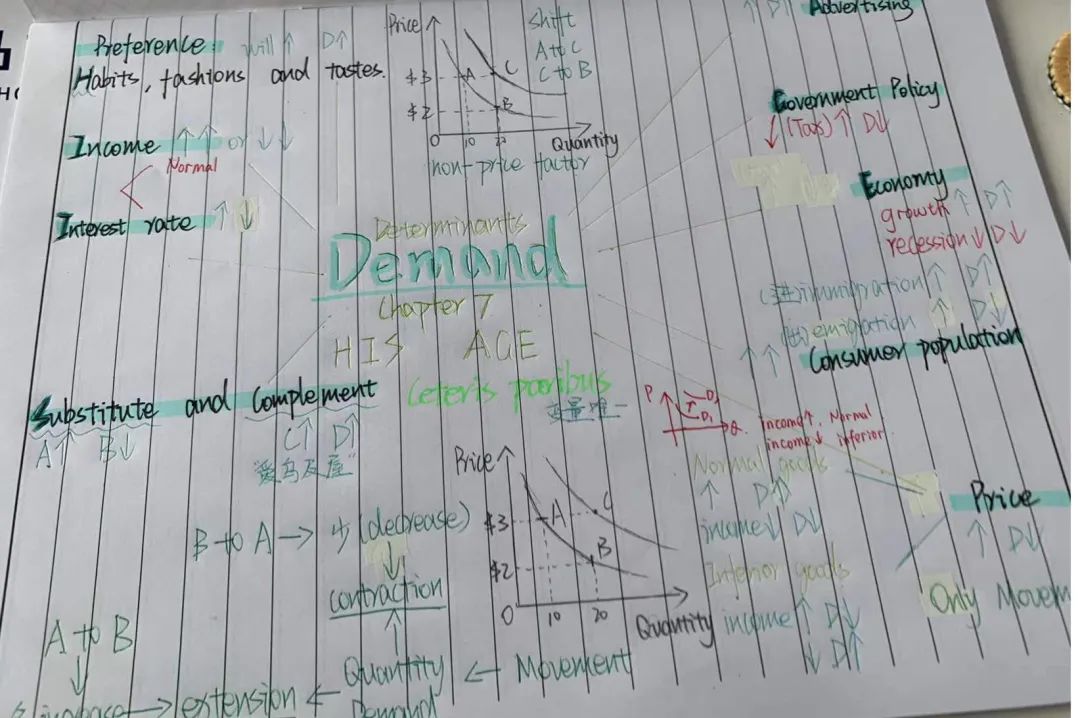 Preference: will ↑ D↑
Habits, fashions and tastes.
Income ↑ ↑ or ↓ ↓
Normal
Interest rate ↑ ↓
Price
$3
$2
A
C
B
0 10 20
Quantity
non-price factor
shift
A to C
C to B
↑ D↑ Advertising
Government Policy
(Tax) ↑ D↓
Economy
growth ↑ D↑
recession ↓ D↓
immigration ↑ D↑
(出) emigration ↑ D↓
↑ ↑ Consumer population
Determinants
Demand
Chapter 7
HIS AGE
Ceteris paribus
变量唯一
Substitute and Complement
A↑ B↓
C↑ D↑
"爱乌及屋"
B to A → 少 (decrease)
contraction
A to B
→ extension ← Quantity Demand ← Movement
Price
$3
$2
A
C
B
0 10 20
Quantity
P
D₁
Q.
income↑, Normal
income↓ inferior
Normal goods
↑ D↑
income↓ D↓
Inferior goods
income↑ D↓
↓ D↑
Price
↑ D↓
Only Movem